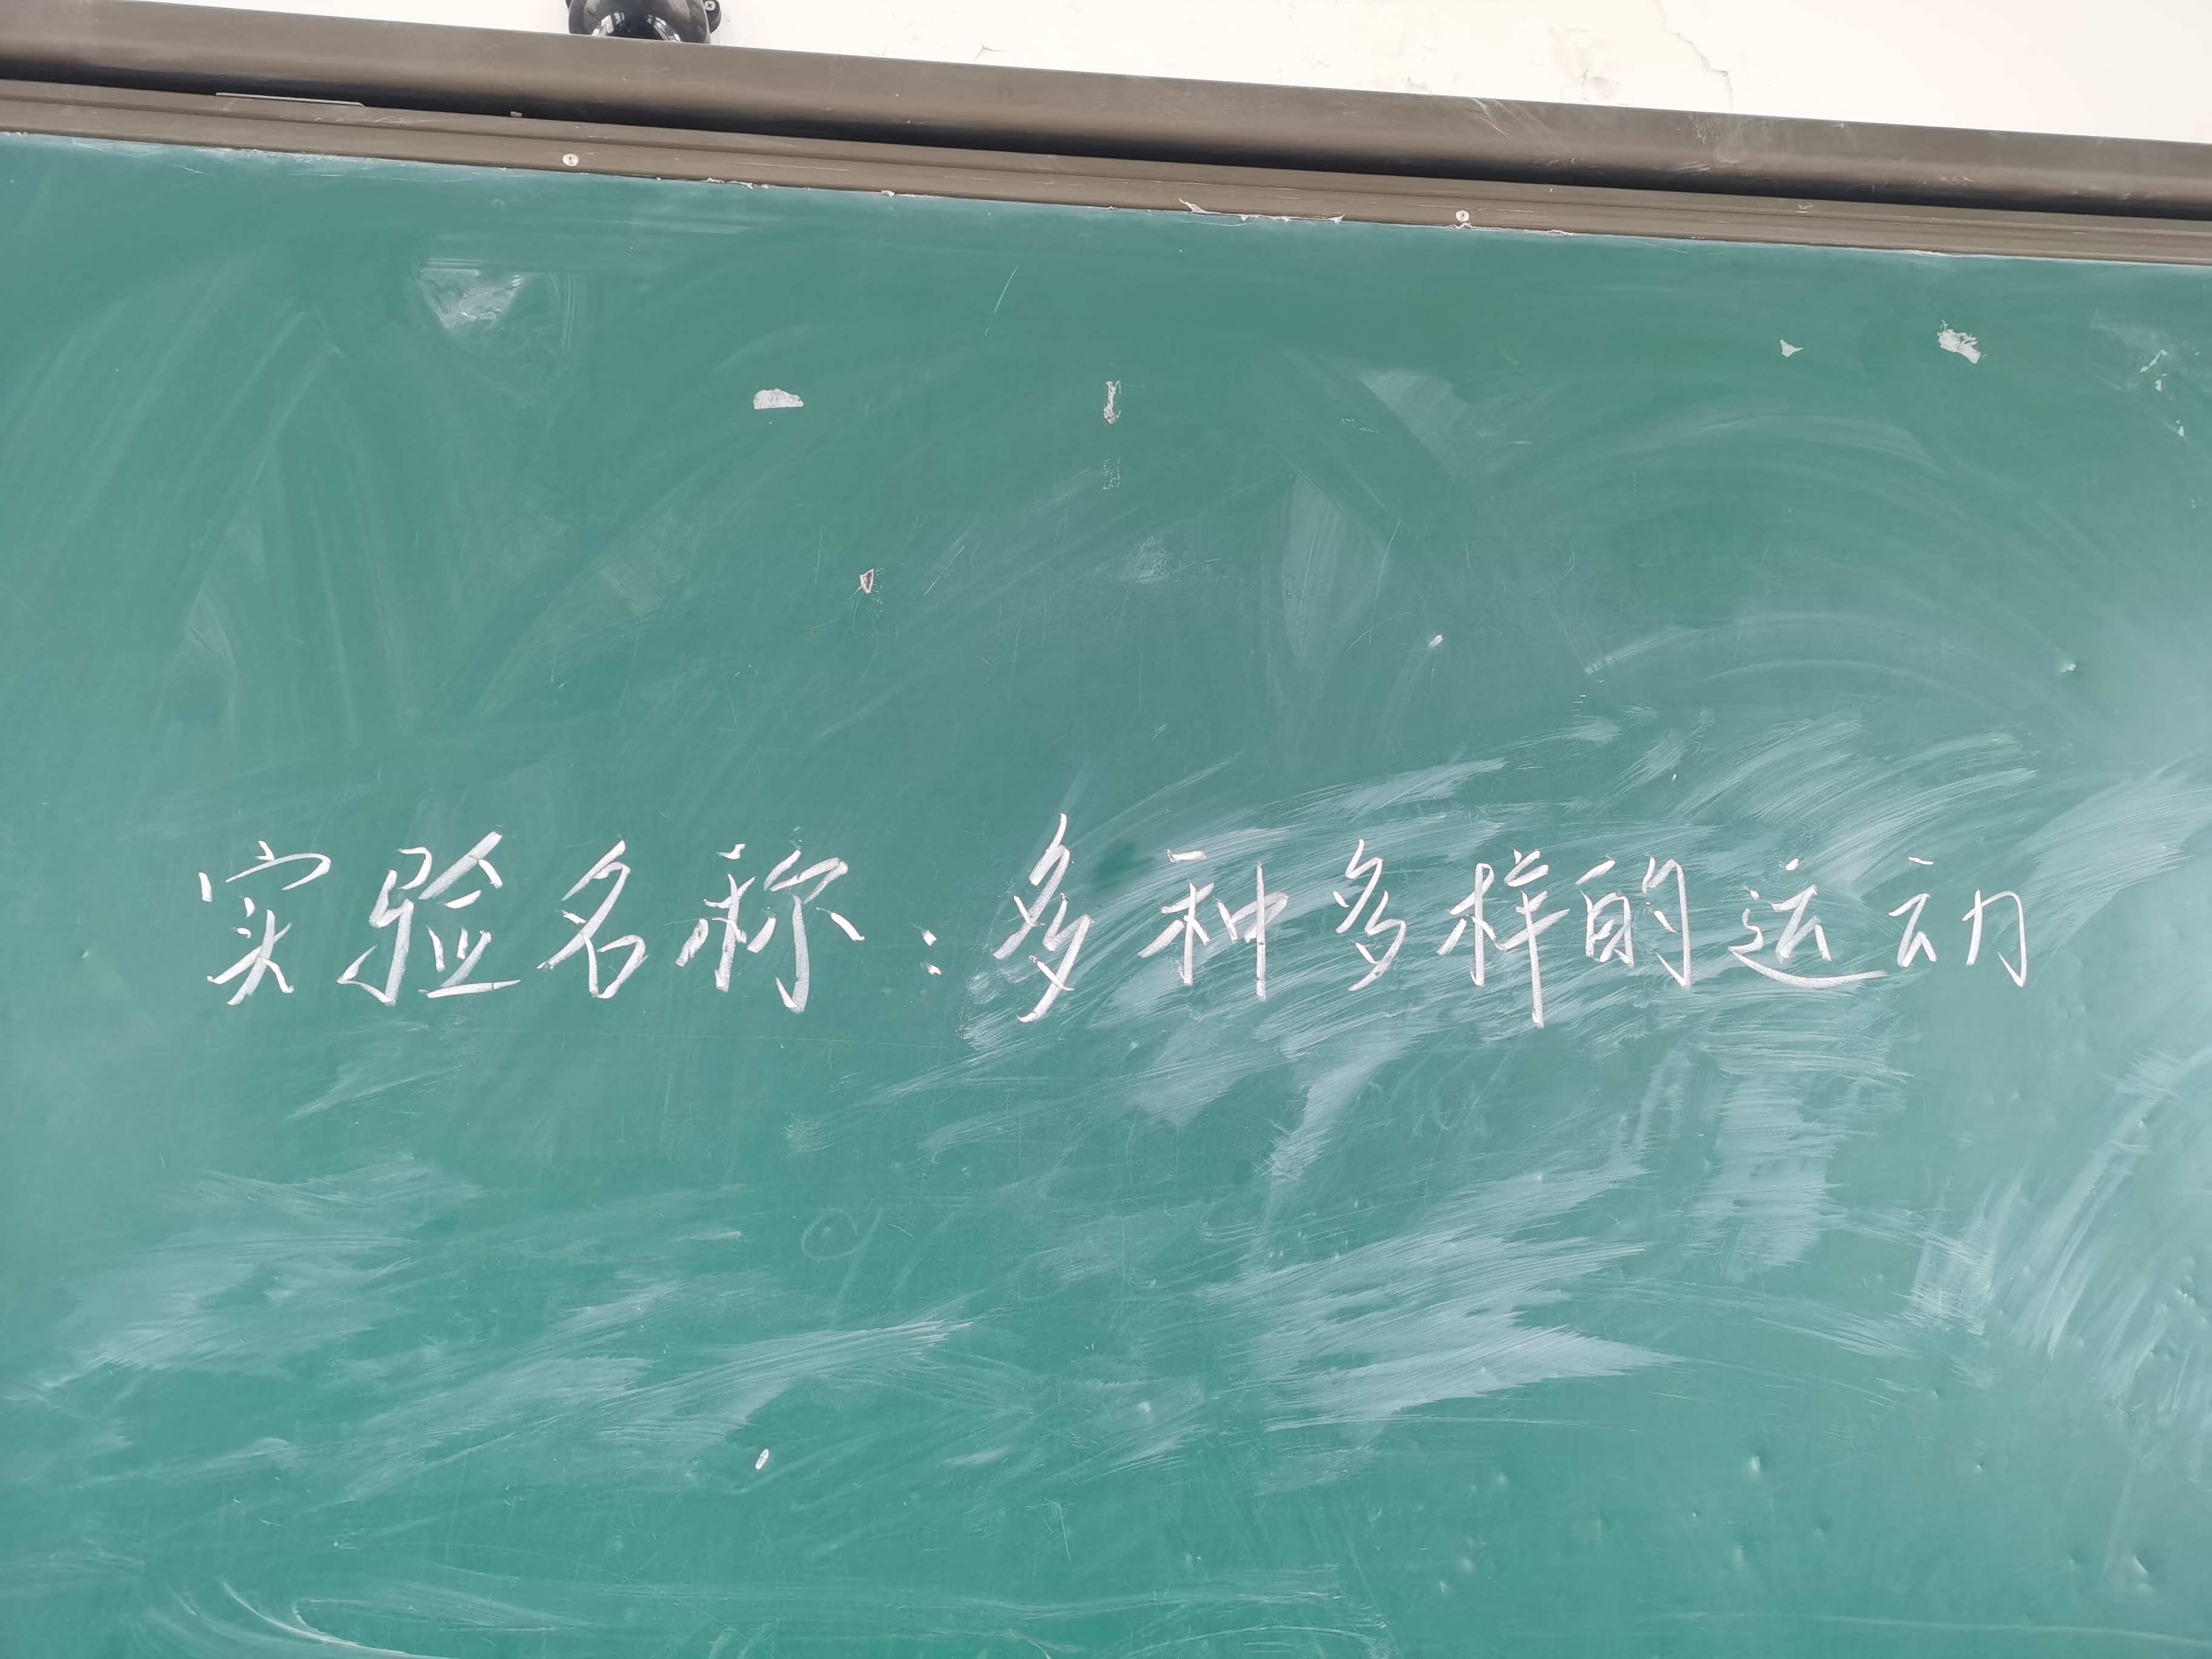 实验名称：多种多样的运动